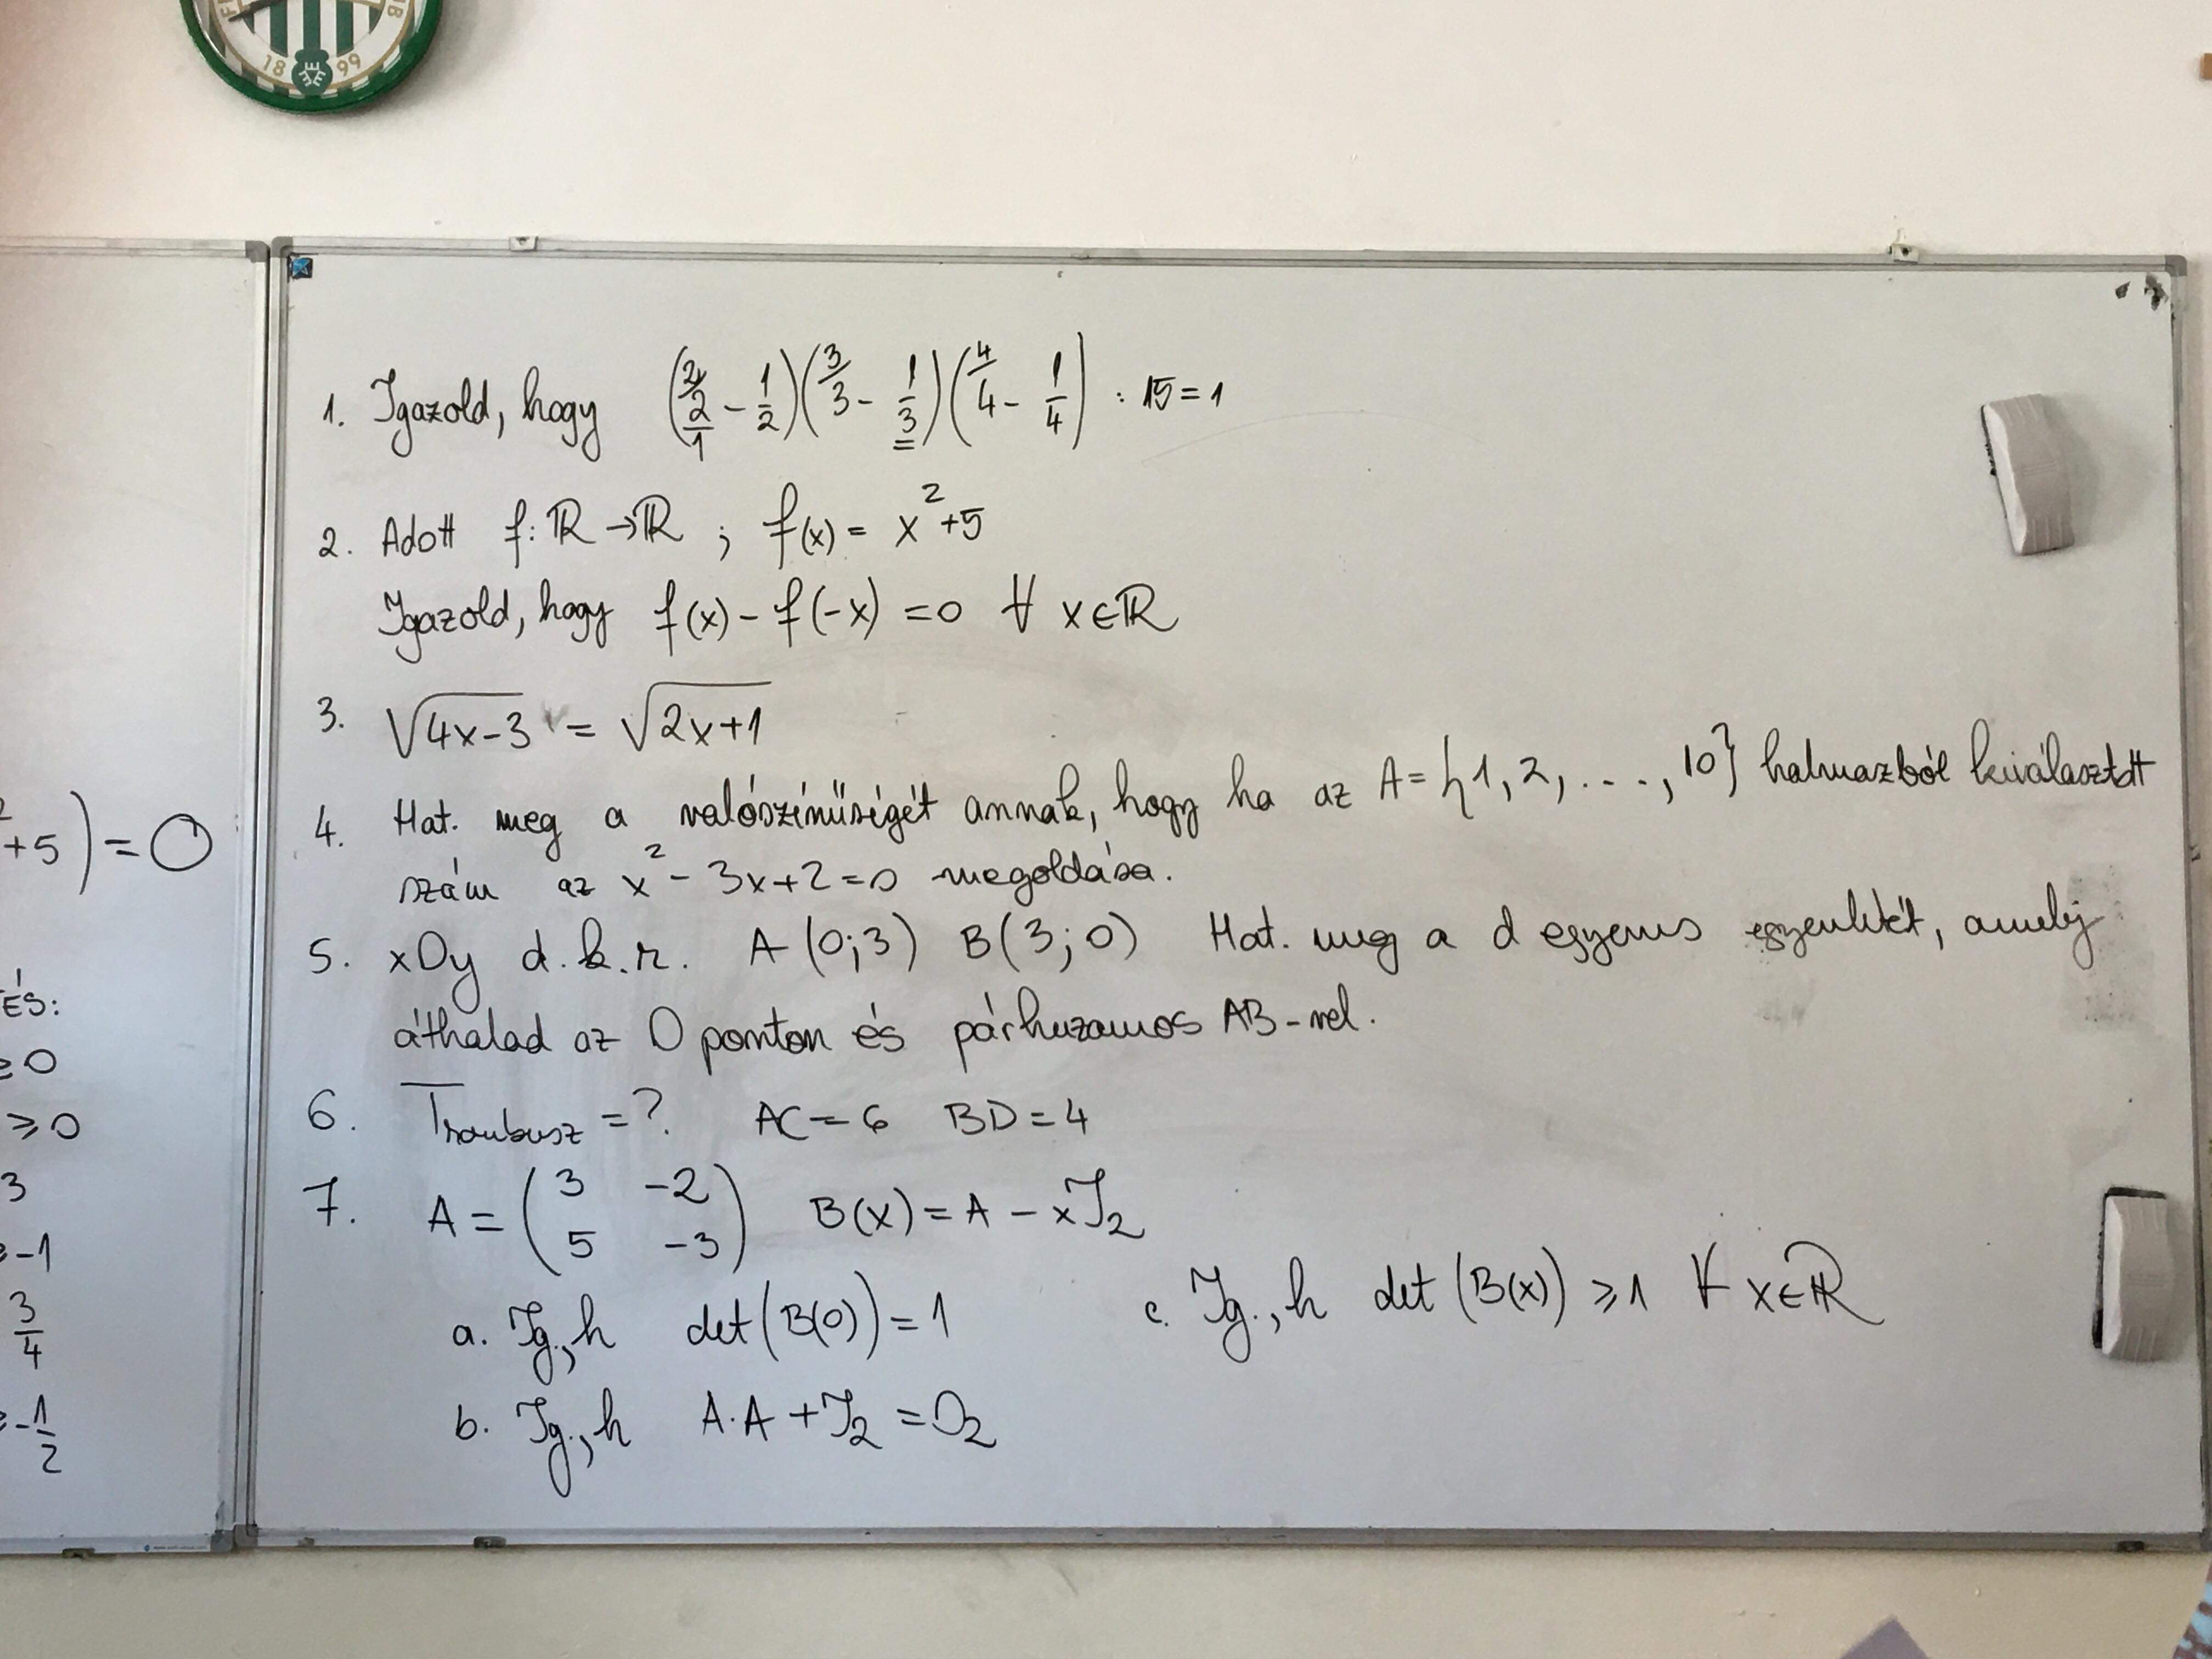 18 99
1. Igazold, hogy (2/2/1 - 1/2)(3/3 - 1/3)(4/4 - 1/4) : 15 = 1
2. Adott f: ℝ → ℝ ; f(x) = x² + 5
Igazold, hogy f(x) - f(-x) = 0 ∀ x ∈ ℝ
3. √(4x-3) = √(2x+1)
4. Hat. meg a valószínűségét annak, hogy ha az A = {1, 2, ..., 10} halmazból kiválasztott
szám az x² - 3x + 2 = 0 megoldása.
5. xOy d.k.r. A (0;3) B(3;0) Hat. meg a d egyenes egyenletét, amely
áthalad az O ponton és párhuzamos AB-vel.
6. T rombusz = ? AC = 6 BD = 4
7. A = (3 -2
5 -3) B(x) = A - xI₂
a. Ig., h det(B(0)) = 1
c. Ig., h det(B(x)) ≥ 1 ∀ x ∈ ℝ
b. Ig., h A·A + I₂ = O₂
2
+5) = 0
ÉS:
≥ 0
≥ 0
3
≥ -1
3/4
≥ -1/2